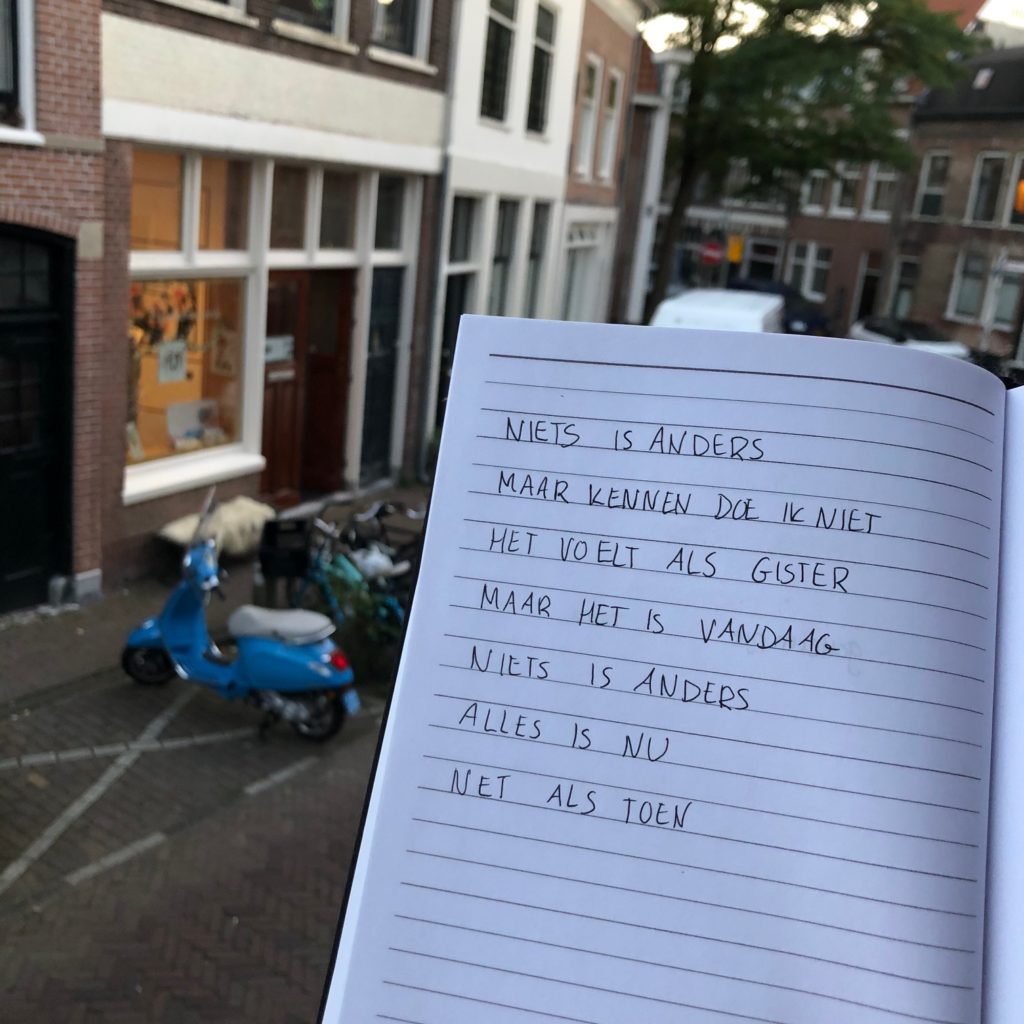 NIETS IS ANDERS
MAAR KENNEN DOE IK NIET
HET VOELT ALS GISTER
MAAR HET IS VANDAAG
NIETS IS ANDERS
ALLES IS NU
NET ALS TOEN